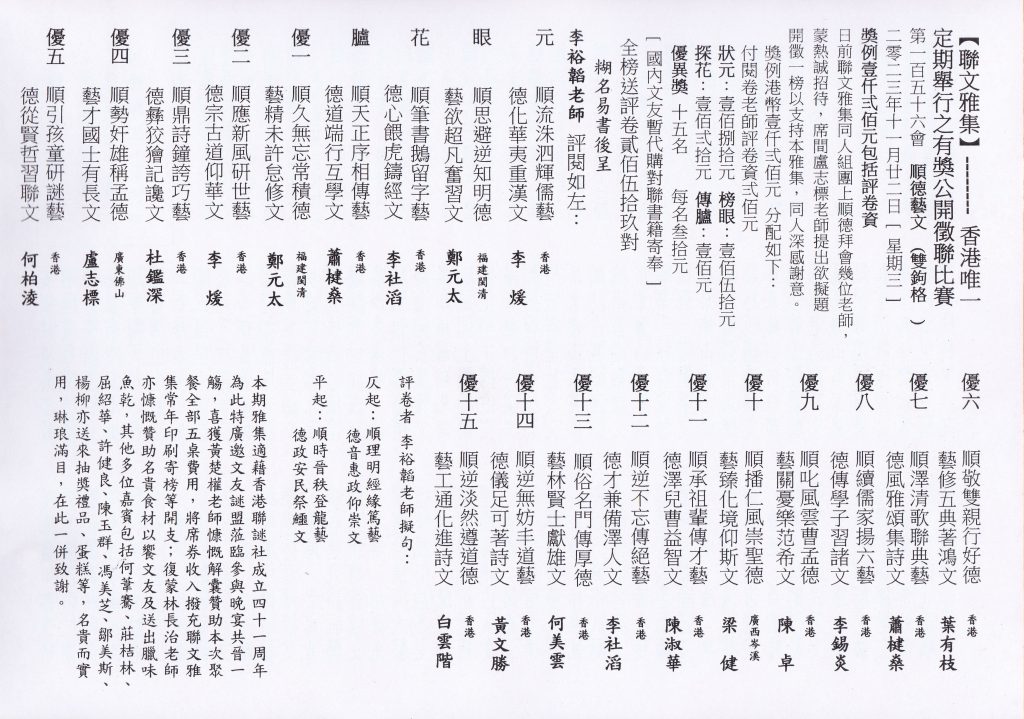 【聯文雅集】 ------- 香港唯一
定期舉行之有獎公開徵聯比賽
第一百五十六會 順德藝文 （雙鈎格 ）
二零二三年十一月廿二日［星期三］
獎例壹仟弍佰元包括評卷資
日前聯文雅集同人組團上順德拜會幾位老師，
蒙熱誠招待，席間盧志標老師提出欲擬題
開徵一榜以支持本雅集，同人深感謝意。
獎例港幣壹仟弍佰元 分配如下：
付閱卷老師評卷資弍佰元
狀元：壹佰捌拾元 榜眼：壹佰伍拾元
探花：壹佰弍拾元 傳臚：壹佰元
優異獎 十五名 每名叁拾元
［國內文友暫代購對聯書籍寄奉］
全榜送評卷貳佰伍拾玖對
糊名易書後呈
李裕韜老師 評閱如左：
元 順流洙泗輝儒藝 香港
德化華夷重漢文 李 煖
眼 順思避逆知明德 福建閩清
藝欲超凡奮習文 鄭元太
花 順筆書鵝留字藝 香港
德心餵虎鑄經文 李社滔
臚 順天正序相傳藝 香港
德道端行互學文 蕭楗燊
優一 順久無忘常積德 福建閩清
藝精未許怠修文 鄭元太
優二 順應新風研世藝 香港
德宗古道仰華文 李 煖
優三 順鼎詩鐘誇巧藝 香港
德彝狡獪記讒文 杜鑑深
優四 順勢奸雄稱孟德 廣東佛山
藝才國士有長文 盧志標
優五 順引孩童研謎藝 香港
德從賢哲習聯文 何柏淩
優六 順敬雙親行好德 香港
藝修五典著鴻文 葉有枝
優七 順澤清歌聯典藝 香港
德風雅頌集詩文 蕭楗燊
優八 順續儒家揚六藝 香港
德傳學子習諸文 李錫炎
優九 順叱風雲曹孟德 香港
藝關憂樂范希文 陳 卓
優十 順播仁風崇聖德 廣西岑溪
藝臻化境仰斯文 梁 健
優十一 順承祖輩傳才藝 香港
德澤兒曹益智文 陳淑華
優十二 順逆不忘傳絕藝 香港
德才兼備澤人文 李社滔
優十三 順俗名門傳厚德 香港
藝林賢士獻雄文 何美雲
優十四 順逆無妨丰道藝 香港
德儀足可著詩文 黃文勝
優十五 順逆淡然遵道德 香港
藝工通化進詩文 白雲階
評卷者 李裕韜老師擬句：
仄起：順理明經緣篤藝
德音惠政仰崇文
平起：順時晉秩登龍藝
德政安民祭鱷文
本期雅集適藉香港聯謎社成立四十一周年
為此特廣邀文友謎盟蒞臨參與晚宴共晉一
觴，喜獲黃楚權老師慷慨解囊贊助本次聚
餐全部五桌費用，將席券收入撥充聯文雅
集常年印刷寄榜等開支；復蒙林長治老師
亦慷慨贊助名貴食材以饗文友及送出臘味
魚乾，其他多位嘉賓包括何葦騫、莊桔林、
屈紹華、許健良、陳玉群、馮美芝、鄒美斯、
楊柳亦送來抽獎禮品、蛋糕等，名貴而實
用，琳琅滿目，在此一併致謝。